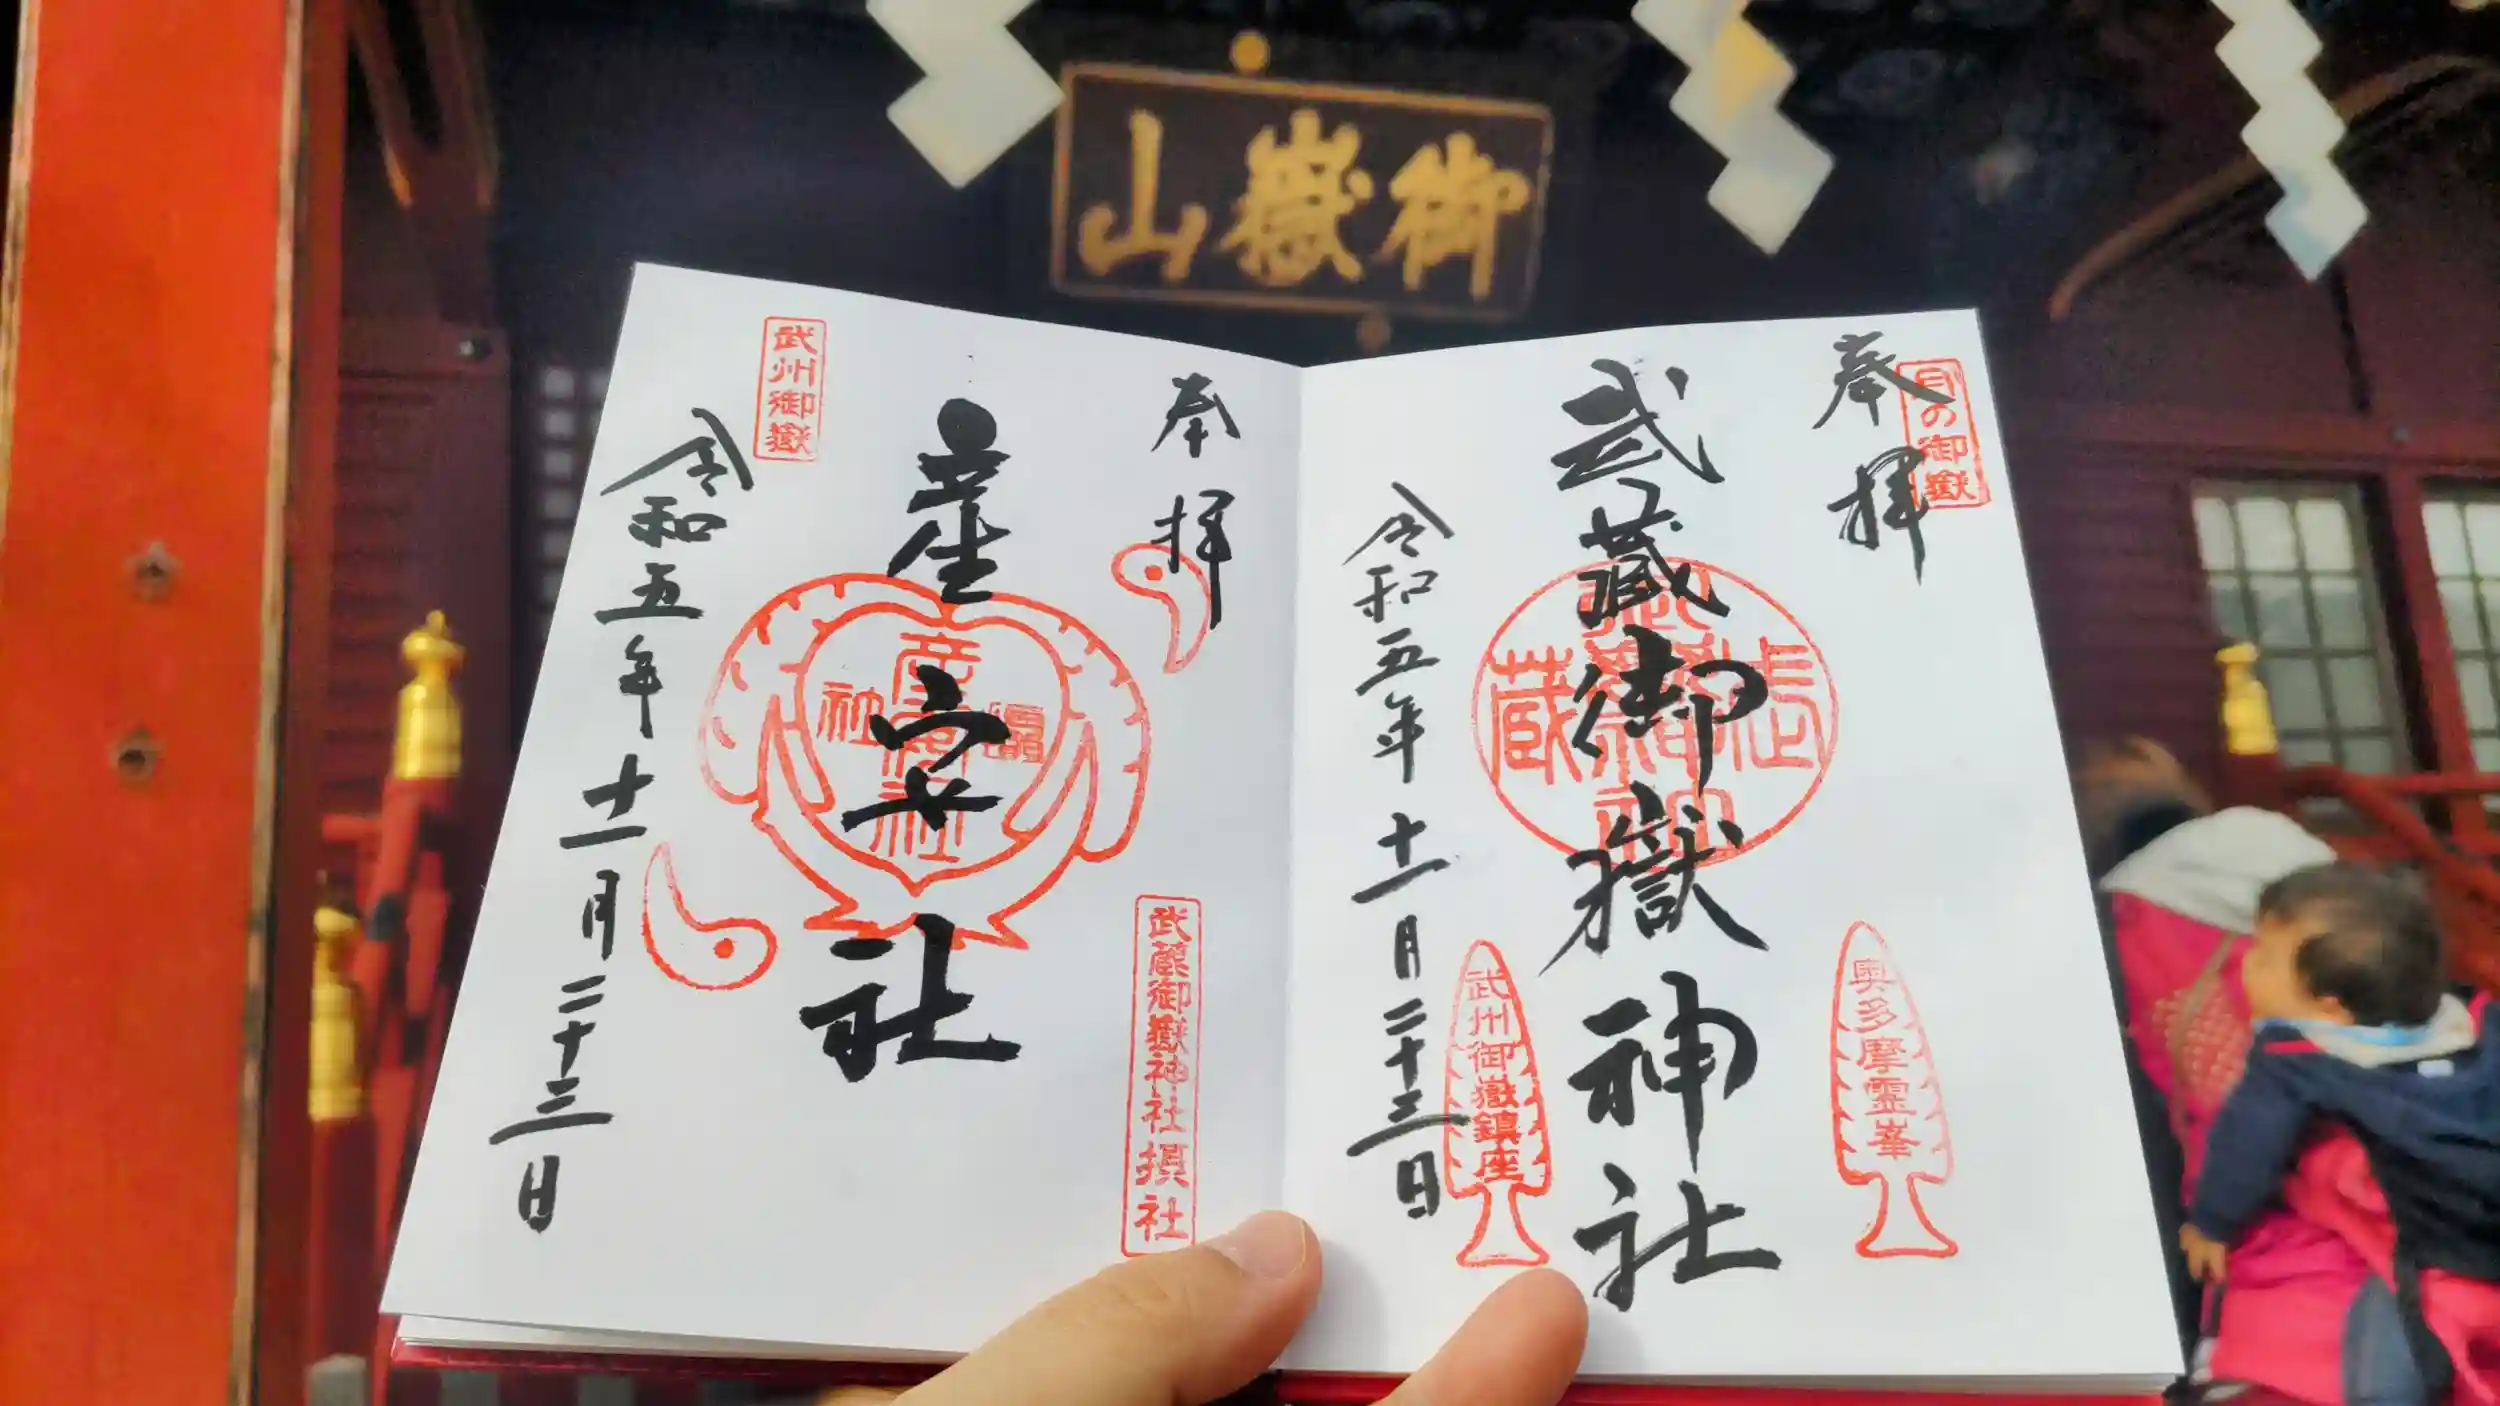 御嶽山
奉拝
日の御嶽
武蔵御嶽神社
奥多摩霊峯
武州御嶽鎮座
令和五年十一月二十三日
奉拝
産安社
武蔵御嶽神社摂社
武州御嶽
令和五年十一月二十三日